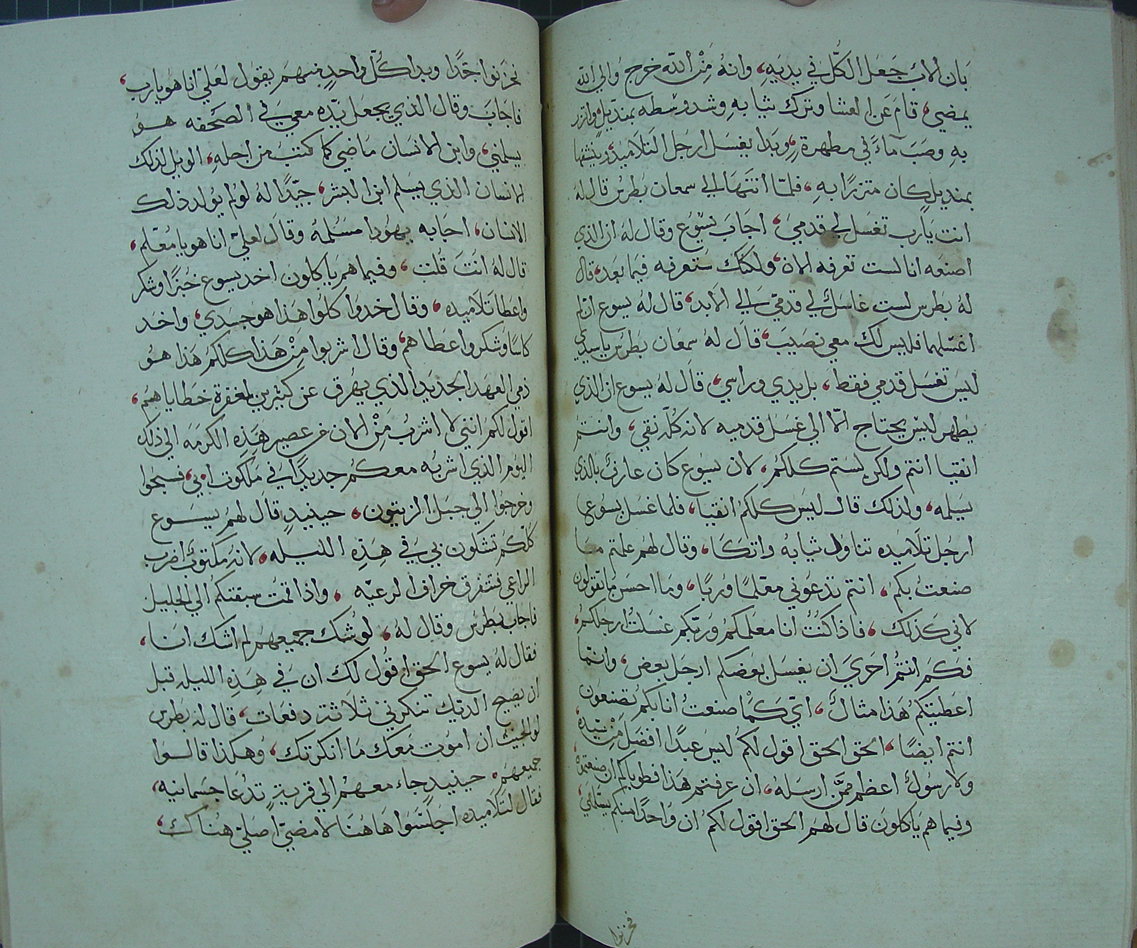 بان الاب جعل الكل في يديه، وانه من الله خرج والى الله
يمضي، قام عن العشا وترك ثيابه وشد وسطه بمنديل واتزر
به وصب مآء في مطهرة، وبدا يغسل ارجل التلاميذ، وينشفها
بمنديل كان متزرًا به، فلمّا انتها الى سمعان بطرس قال له
انت يارب تغسل لي قدمي، اجاب يسوع وقال له ان الذي
اصنعه انا لست تعرفه الان، ولكنك ستعرفه فيما بعد، قال
له بطرس لست غاسل لي قدمي الى الابد، قال له يسوع ان لم
اغسلهما فليس لك معي نصيب، قال له سمعان بطرس ياسيدي
ليس تغسل قدمي فقط، بل يدي وراسي، قال له يسوع ان الذي
يطهر ليس يحتاج الّا الى غسل قدميه لانه كله نقي، وانتم
انقيا انتم ولكن لستم كلكم، لان يسوع كان عارف بالذي
يسلمه، ولذلك قال ليس كلكم انقيا، فلما غسل يسوع
ارجل تلاميذه تناول ثيابه واتكا، وقال لهم علمتم ما
صنعت بكم، انتم تدعوني معلمًا وربًا، وما احسن ما تقولون
لاني كذلك، فاذا كنت انا معلمكم وربكم غسلت ارجلكم،
فكم انتم احرى ان يغسل بعضكم ارجل بعض، وانما
اعطيتكم هذا مثال، اي كما صنعت انا بكم تصنعون
انتم ايضًا، الحق الحق اقول لكم ليس عبدًا افضل من سيده
ولا رسولًا اعظم ممن ارسله، ان عرفتم هذا فطوباكم ان صنعتموه
وفيما هم ياكلون قال لهم الحق اقول لكم ان واحدًا منكم يسلمني،
فحزنوا
فحزنوا جدًا وبدا كل واحد منهم يقول لعلي انا هو يارب،
فاجاب وقال الذي يجعل يده معي في الصحفه هو
يسلمني، وابن الانسان ماضي كما كتب من اجله، الويل لذلك
الانسان الذي يسلم ابن البشر، جيدًا له لو لم يولد ذلك
الانسان، اجابه يهودا مسلمه وقال لعلي انا هو يا معلم،
قال له انت قلت، وفيما هم ياكلون اخد يسوع خبزًا وشكر
واعطا تلاميده، وقال خدوا كلوا هذا هو جسدي، واخد
كاسًا وشكر واعطاهم، وقال اشربوا من هذا كلكم هذا هو
دمي العهد الجديد الذي يهرق عن كثيرين لمغفرة خطاياهم،
اقول لكم انني لا اشرب من الان من عصير هذه الكرمه الى ذلك
اليوم الذي اشربه معكم جديدًا في ملكوت ابي، فسبحوا
وخرجوا الى جبل الزيتون، حينيدٍ قال لهم يسوع
كلكم تشكون بي في هذه الليله، لانه مكتوب اضرب
الراعي فتفرق خراف الرعيه، واذا قمت سبقتكم الى الجليل
فاجاب بطرس وقال له، لو شك جميعهم لم اشك انا،
فقال له يسوع الحق اقول لك ان في هذه الليله قبل
ان يصيح الديك تنكرني ثلاثة دفعات، قال له بطرس
لو الجيت ان اموت معك ما انكرتك، وهكذا قالوا
جميعهم، حينيدٍ جاء معهم الى قرية تدعا جسمانيه،
فقال لتلاميده اجلسوا هاهنا لامضي اصلي هناك،